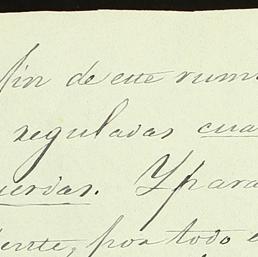 fin de este rum
reguladas cua
uerdas. Y para
ente, por todo e